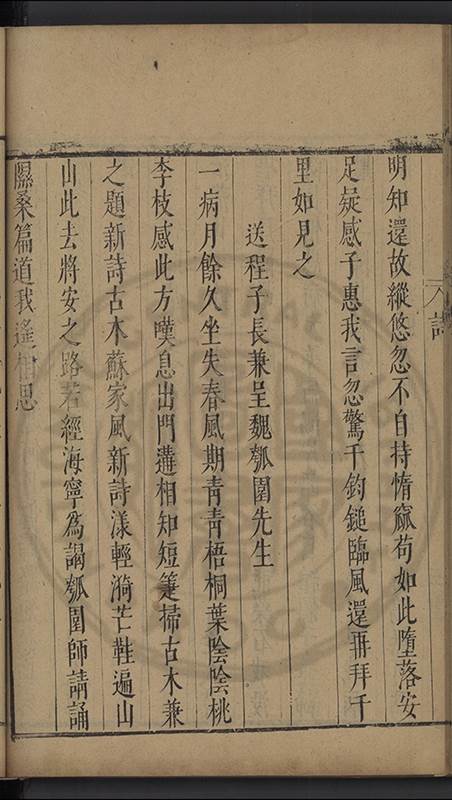 明知還故縱悠忽不自持惰窳苟如此墮落安
足疑感子惠我言忽驚千鈞鎚臨風還再拜千
里如見之
送程子長兼呈魏瓠園先生
一病月餘久坐失春風期青青梧桐葉陰陰桃
李枝感此方嘆息出門遘相知短箑掃古木兼
之題新詩古木蘇家風新詩漾輕漪芒鞋遍山
山此去將安之路若經海寧為謁瓠園師請誦
隰桑篇道我遙相思